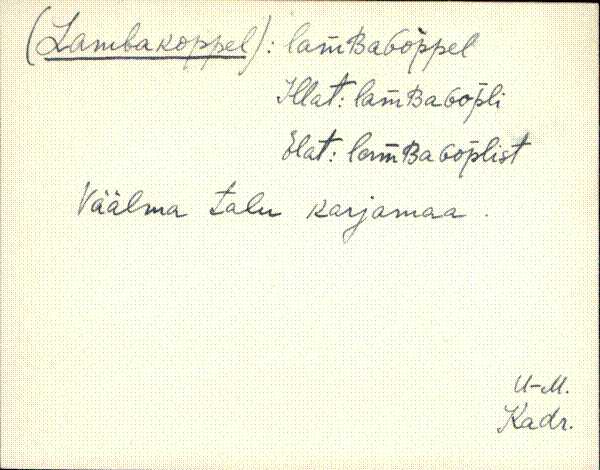 (Lambakoppel): lam̄Baɢòppel
Illat: lam̄Baɢop̄li
Elat: lam̄Baɢop̄list
Väälma talu karjamaa.
U-M.
Kadr.